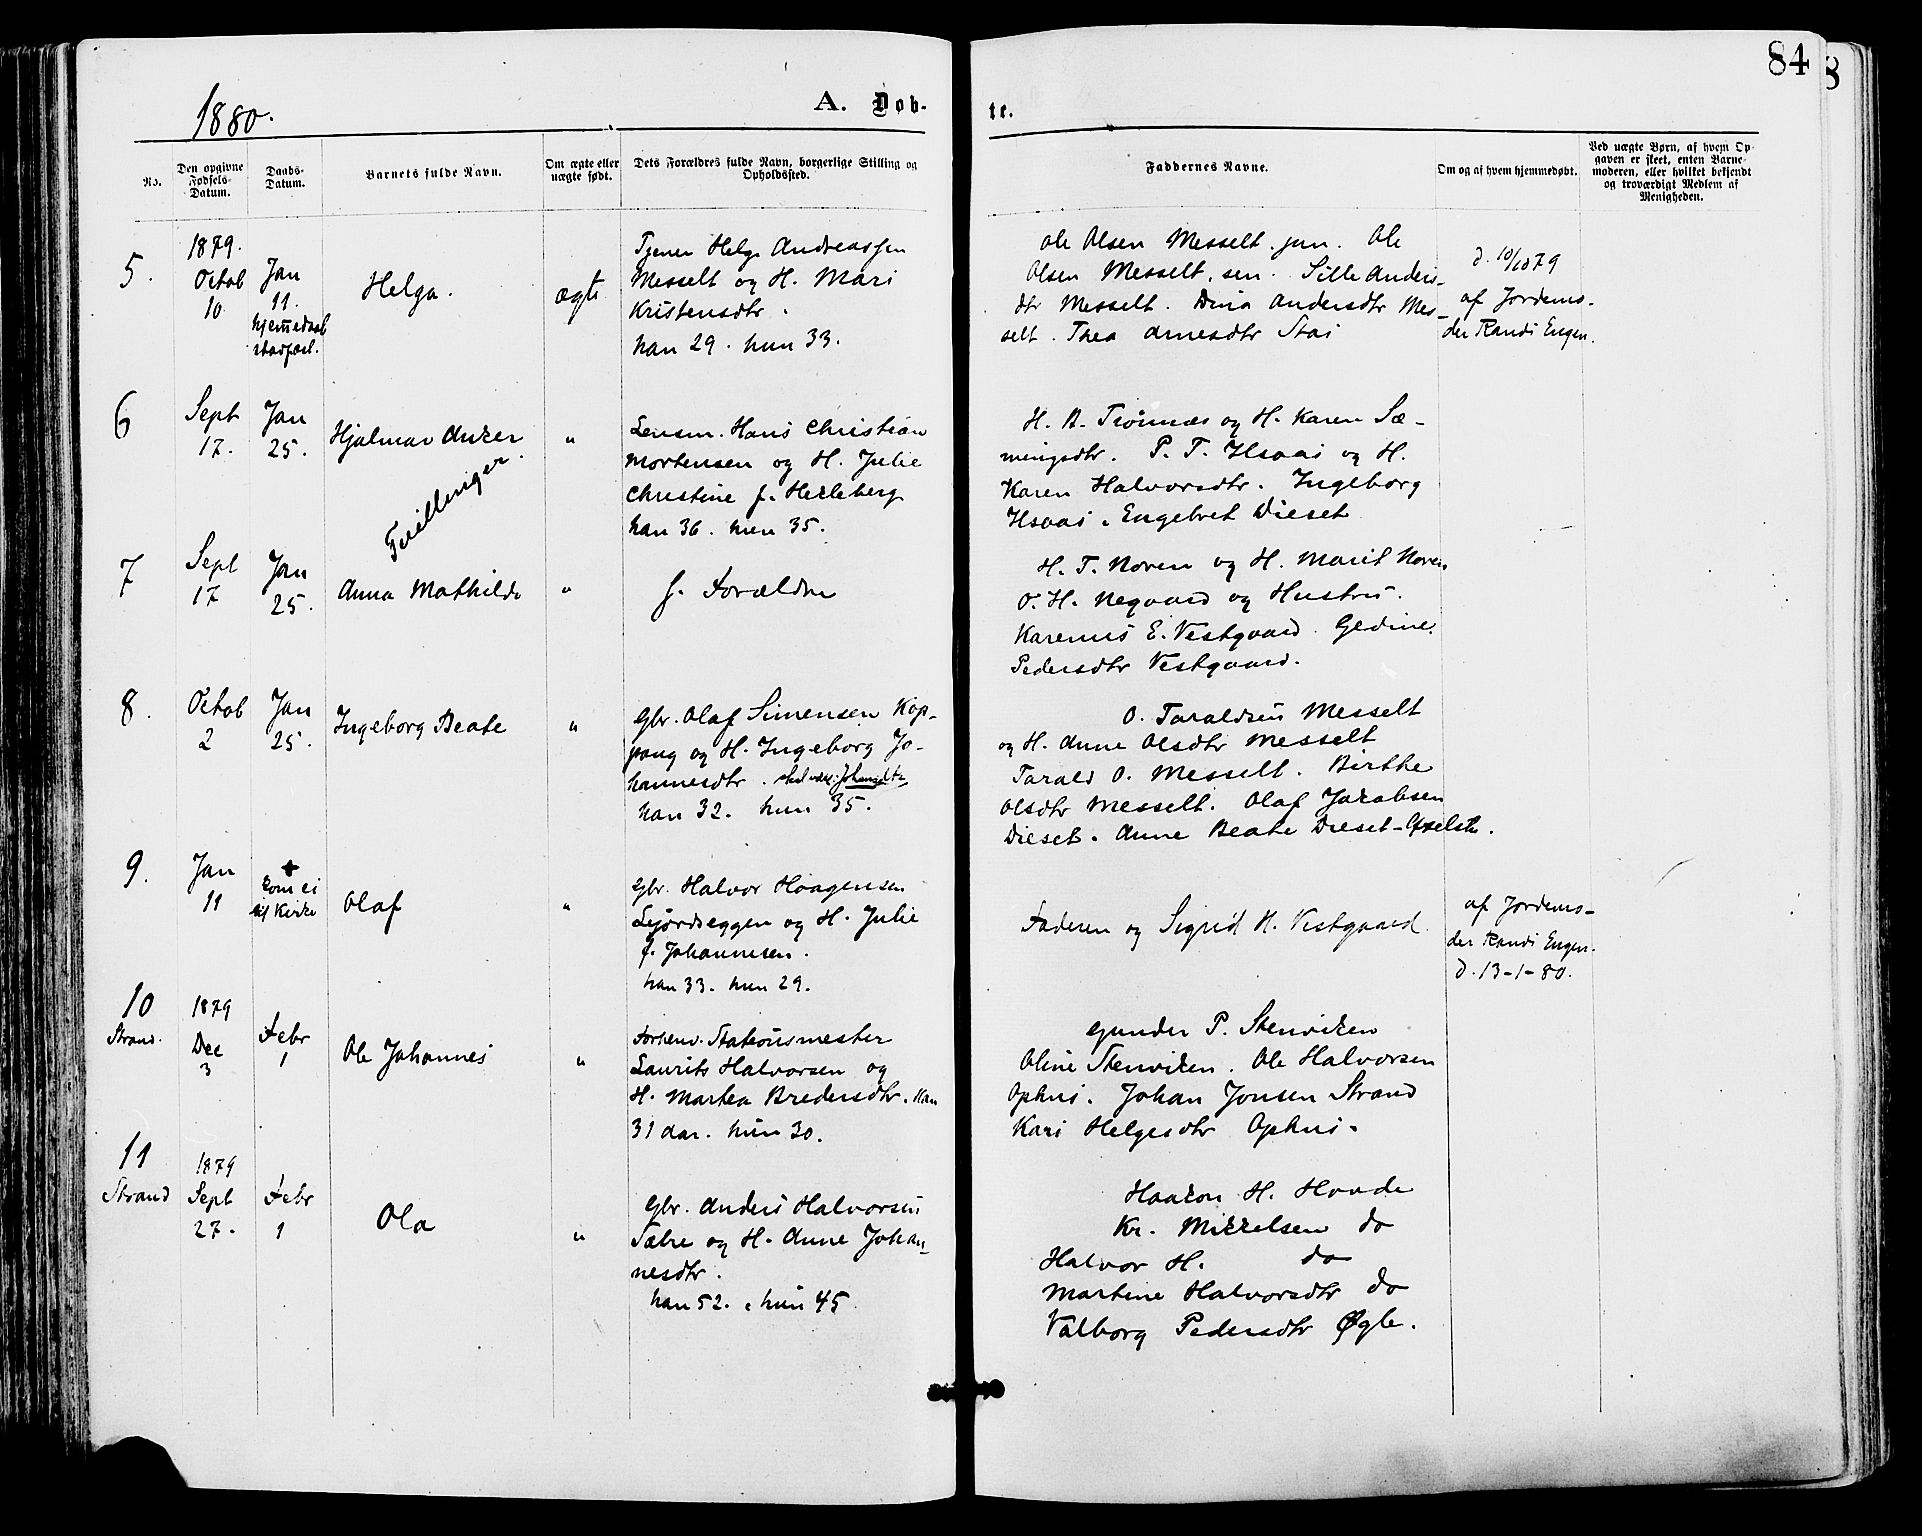 84
8
1880.
A. Døb-
te.
No.
Den opgivne Fødsels-Datum.
Daabs-Datum.
Barnets fulde Navn.
Om ægte eller uægte født.
Dets Forældres fulde Navn, borgerlige Stilling og Opholdssted.
Faddernes Navne.
Om og af hvem hjemmedøbt.
Ved uægte Børn, af hvem Opgaven er skeet, enten Barnemoderen, eller hvilket bekjendt og troværdigt Medlem af Menigheden.
5.
1879.
Octob
10
Jan
11.
hjemmedaab
stadfæst.
Helga.
ægte
Tjener Helge Andreassen
Messelt og H. Mari
Kristensdtr.
han 29. hun 33.
Ole Olsen Messelt. jun. Ole
Olsen Messelt, sen. Sille Anders-
dtr Messelt. Dina Andersdtr Mes-
selt. Thea Arnesdtr Stai
d. 10/10 79
af Jordemo-
der Randi Engen.
6
Sept
17.
Jan
25.
Hjalmar Anker
Tvillinger.
"
Lensm. Hans Christian
Mortensen og H. Julie
Christine f. Helleberg
han 36. hun 35.
H. A. Trønnæs og H. Karen Sæ-
mingsdtr. P. T. Hsaas og H.
Karen Halvorsdtr. Ingeborg
Hsaas. Engebret Dieset
7
Sept
17
Jan
25.
Anna Mathilde
"
f. Forældre
H. T. Noren og H. Marit Noren
O. H. Negaard og Hustru.
Karenus E. Vestgaard. Gedine
Pedersdtr Vestgaard.
8.
Octob
2
Jan
25.
Ingeborg Beate
"
Gbr. Olaf Simensen Kop-
pang og H. Ingeborg Jo-
hannesdtr. skal være: Johansdtr
han 32. hun 35.
O. Taraldsen Messelt
og H. Anne Olsdtr Messelt
Tarald O. Messelt. Birthe
Olsdtr Messelt. Olaf Jakobsen
Dieset. Anne Beate Dieset-
9.
Jan
11
+
kom ei
til Kirke
Olaf
"
Gbr. Halvor Haagensen
Lejordseggen og H. Julie
f. Johannesen.
han 33. hun 29.
Faderen og Sigrid H. Vestgaard
af Jordemo-
der Randi Engen.
d. 13-1-80.
10
Strand.
1879
Dec
3
Febr
1
Ole Johannes
"
Forhenv. Stationsmester
Laurits Halvorsen og
H. Marthea Bredersdtr. Han
31 aar. hun 30.
Gunder P. Stenviken
Oline Stenviken. Ole Halvorsen
Ophus. Johan Jonsen Strand
Kari Helgesdtr Ophus.
11
Strand
1879
Sept
27.
Febr
1
Ola
"
Gbr. Anders Halvorsen
Sætre og H. Anne Johan-
nesdtr.
han 52. hun 45.
Haakon H. Hovde
Kr. Mikkelsen do
Halvor H. do
Martine Halvorsdtr do
Valborg Pedersdtr Øgle.